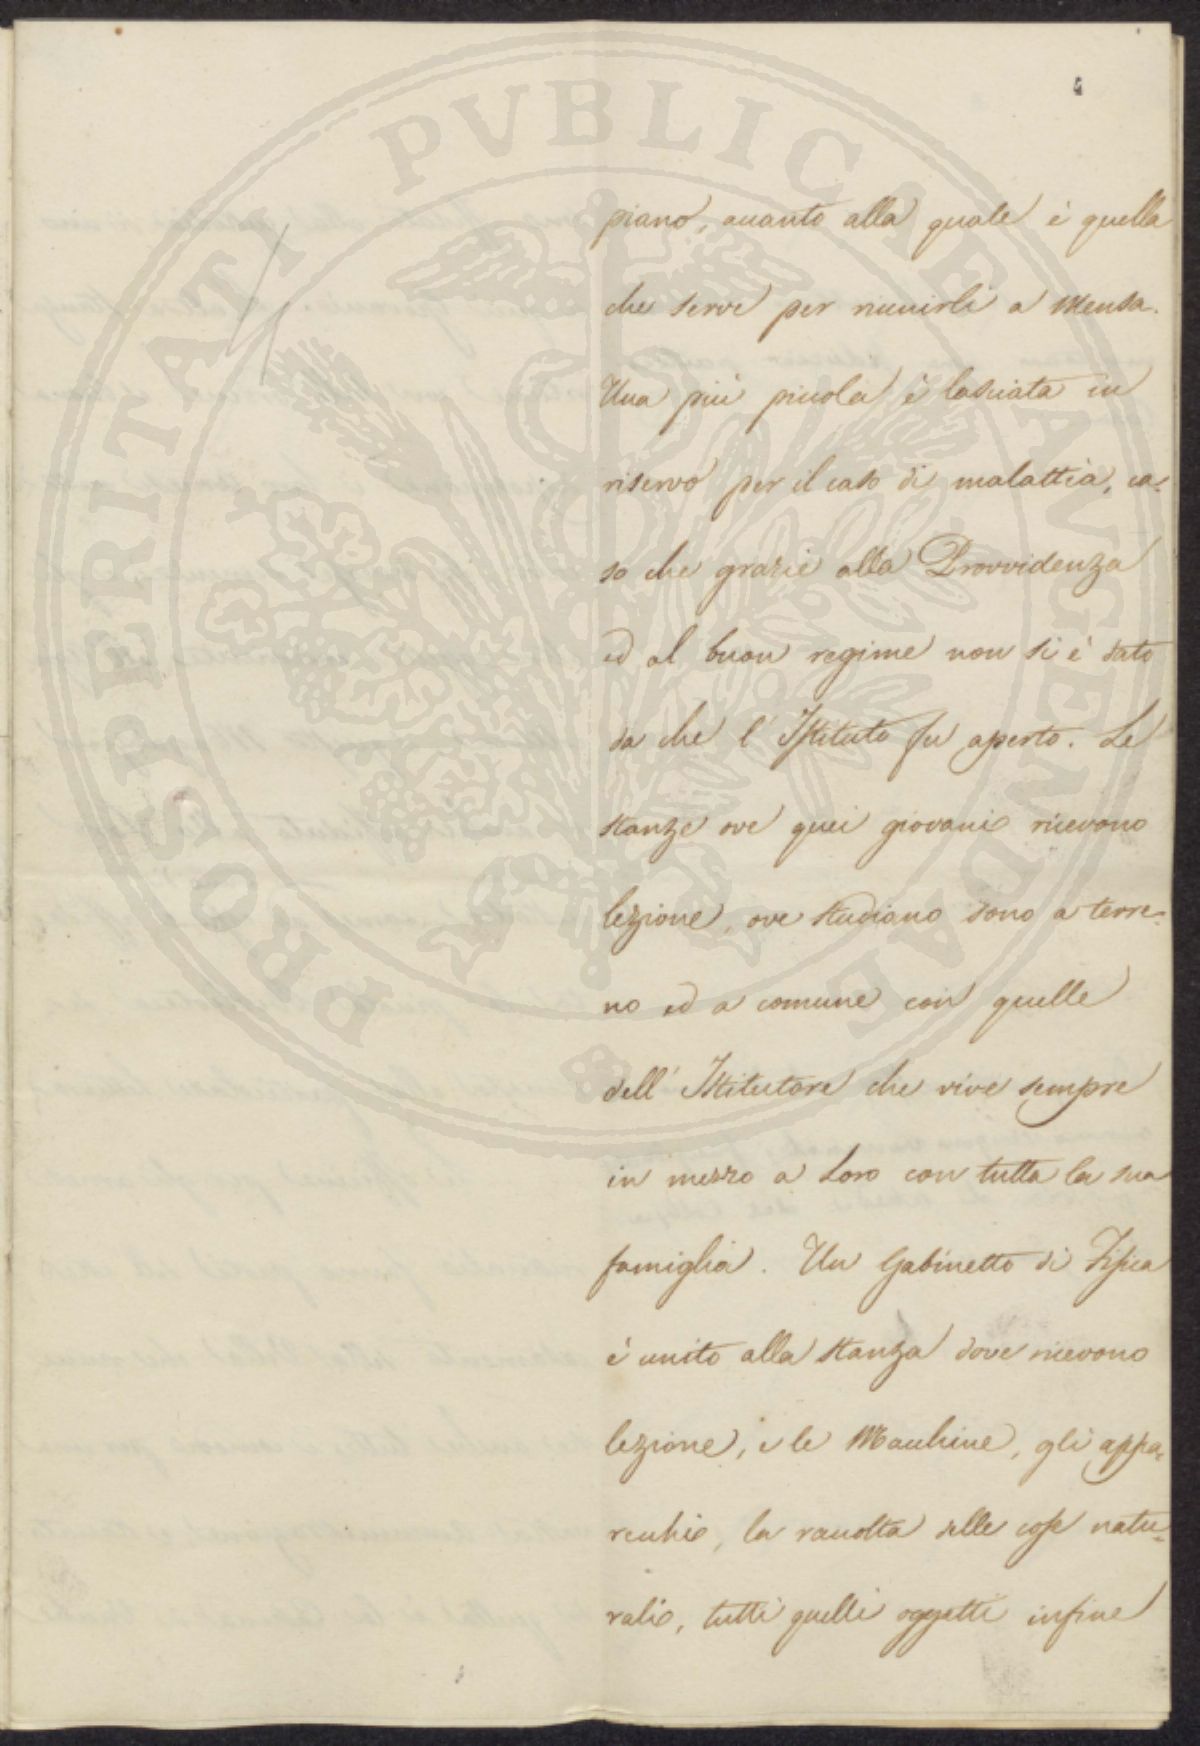 PROSPERITATI PVBLICAE AVGENDAE
piano, quanto alla quale è quella
che serve per riunirli a Mensa.
Una più piccola è lasciata in
riservo per il caso di malattia, ca-
so che grazie alla Provvidenza
ed al buon regime non si è dato
da che l'Istituto fu aperto. Le
stanze ove quei giovani ricevono
lezione, ove studiano sono a terre-
no ed a comune con quelle
dell'Istitutore che vive sempre
in mezzo a Loro con tutta la sua
famiglia. Un Gabinetto di Fisica
è unito alla stanza dove ricevono
lezione, e le Macchine, gli appa-
recchi, la raccolta delle cose natu-
rali, tutti quelli oggetti infine